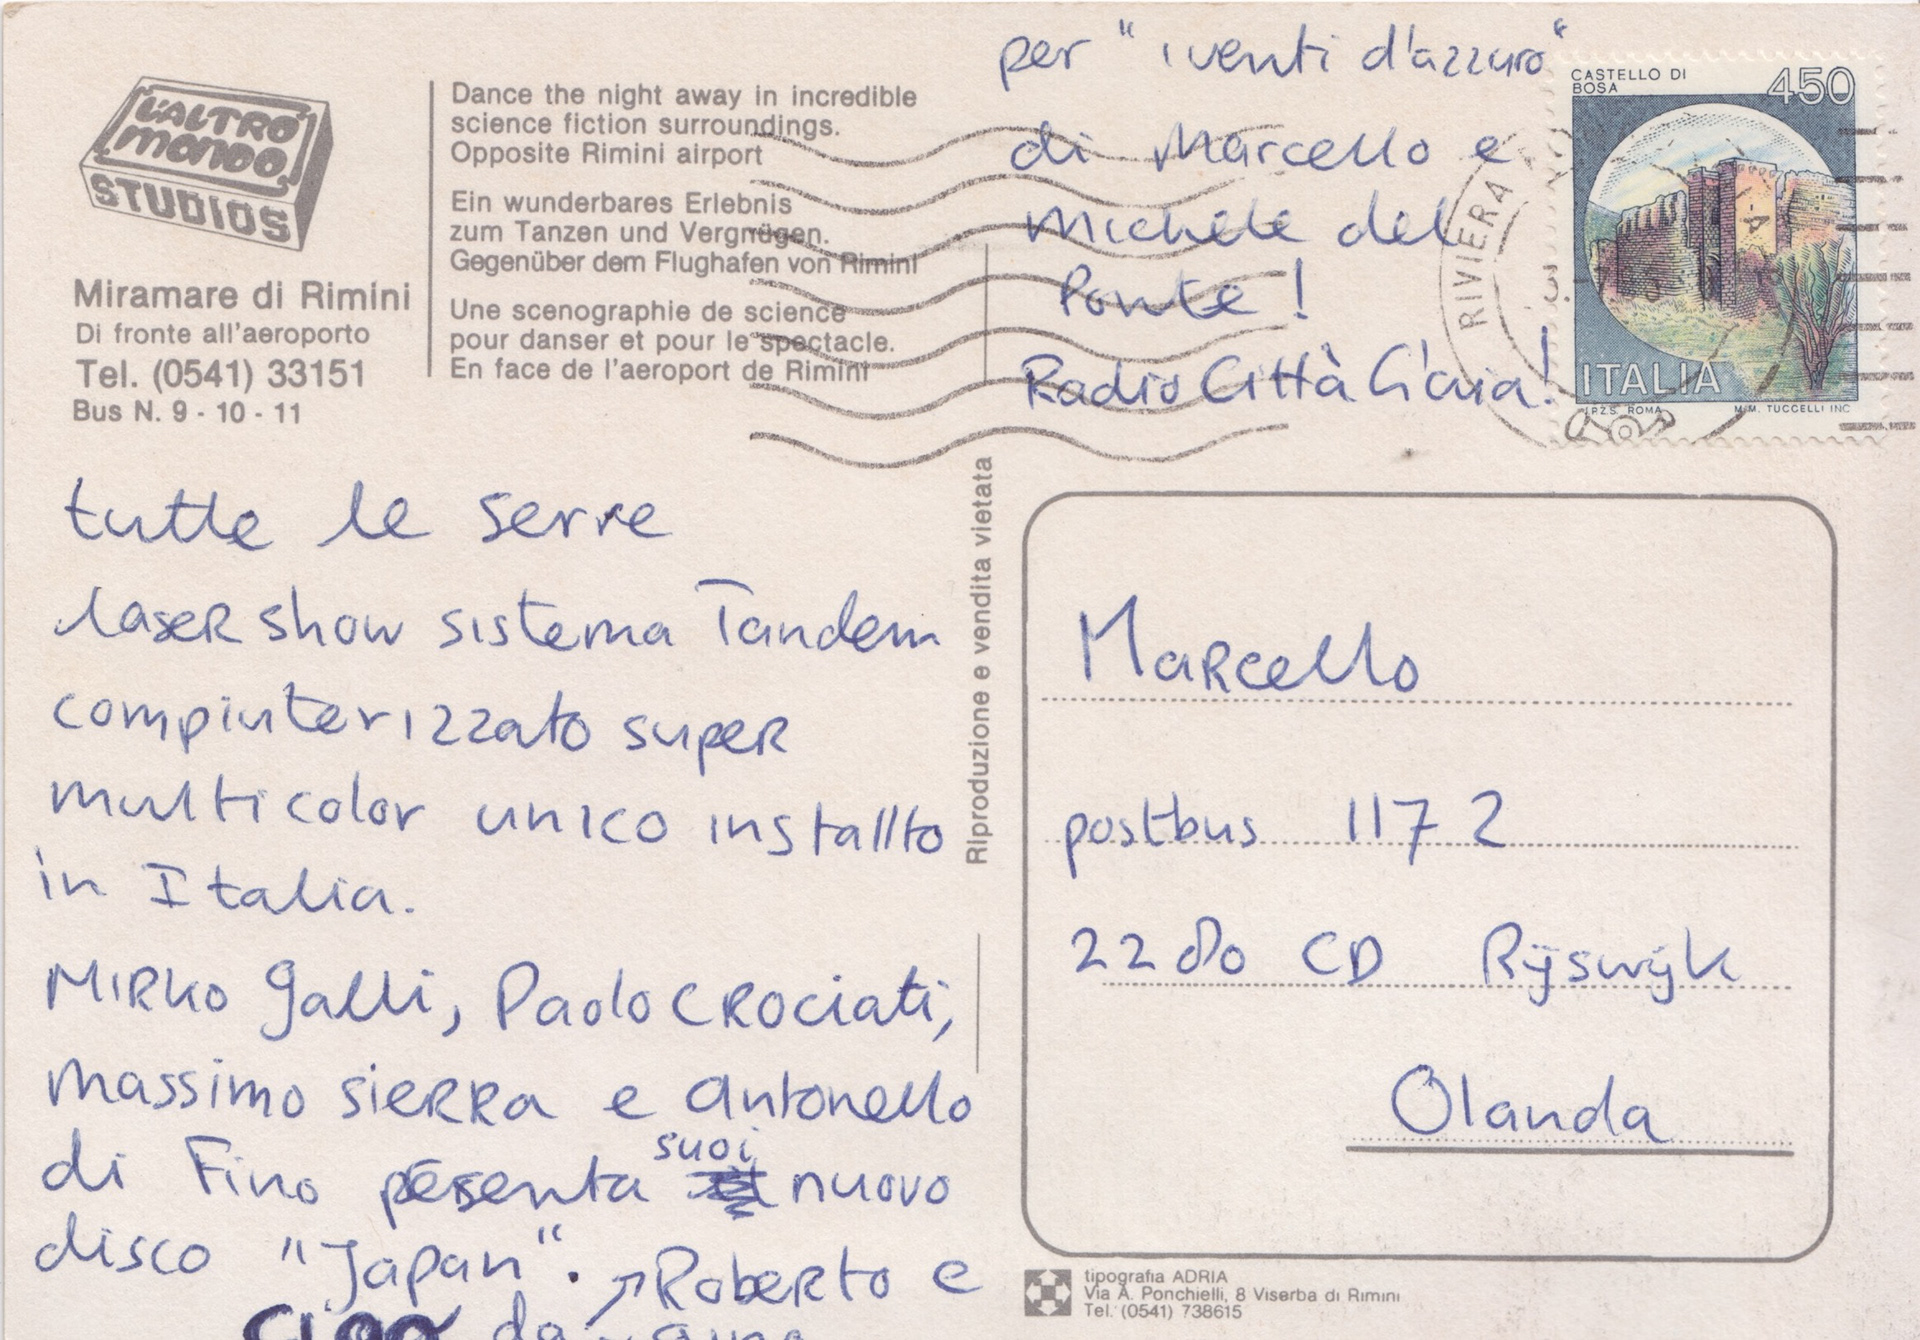 L'ALTRO
MONDO
STUDIOS
Miramare di Rimini
Di fronte all'aeroporto
Tel. (0541) 33151
Bus N. 9 - 10 - 11
Dance the night away in incredible
science fiction surroundings.
Opposite Rimini airport
Ein wunderbares Erlebnis
zum Tanzen und Vergnügen.
Gegenüber dem Flughafen von Rimini
Une scenographie de science
pour danser et pour le spectacle.
En face de l'aeroport de Rimini
per " i venti d'azzuro"
di Marcello e
Michele del
Ponte !
Radio Città
CASTELLO DI
BOSA
450
ITALIA
I.P.Z.S. ROMA
M.M. TUCCELLI INC
RIVIERA
tutte le serre
laser show sistema Tandem
compiuterizzato super
multicolor unico installto
in Italia.
Mirko Galli, Paolo Crociati,
Massimo Sierra e Antonello
di Fino presenta suoi nuovo
disco "Japan". ↗Roberto e
ciao da
Riproduzione e vendita vietata
Marcello
postbus 1172
2280 CD Rijswijk
Olanda
tipografia ADRIA
Via A. Ponchielli, 8 Viserba di Rimini
Tel. (0541) 738615